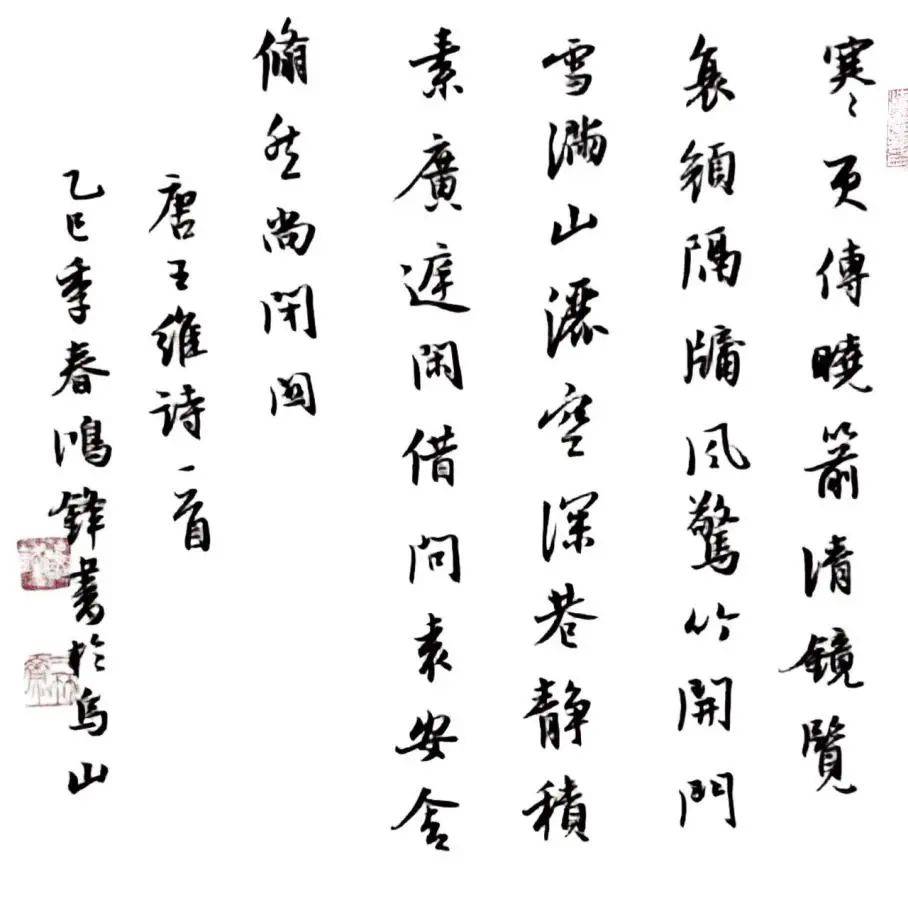 寒更傳曉箭清鏡覽
衰顏隔牖風驚竹開門
雪滿山灑空深巷靜積
素廣庭閑借問袁安舍
翛然尚閉關
唐王維詩一首
乙巳季春鴻鋒書於烏山